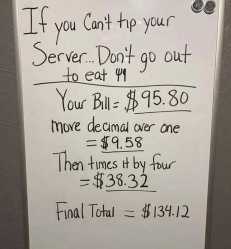 If you Can't tip your
Server... Don't go out
to eat
Your Bill = $95.80
move decimal over one
= $9.58
Then times it by four
= $38.32
Final Total = $134.12